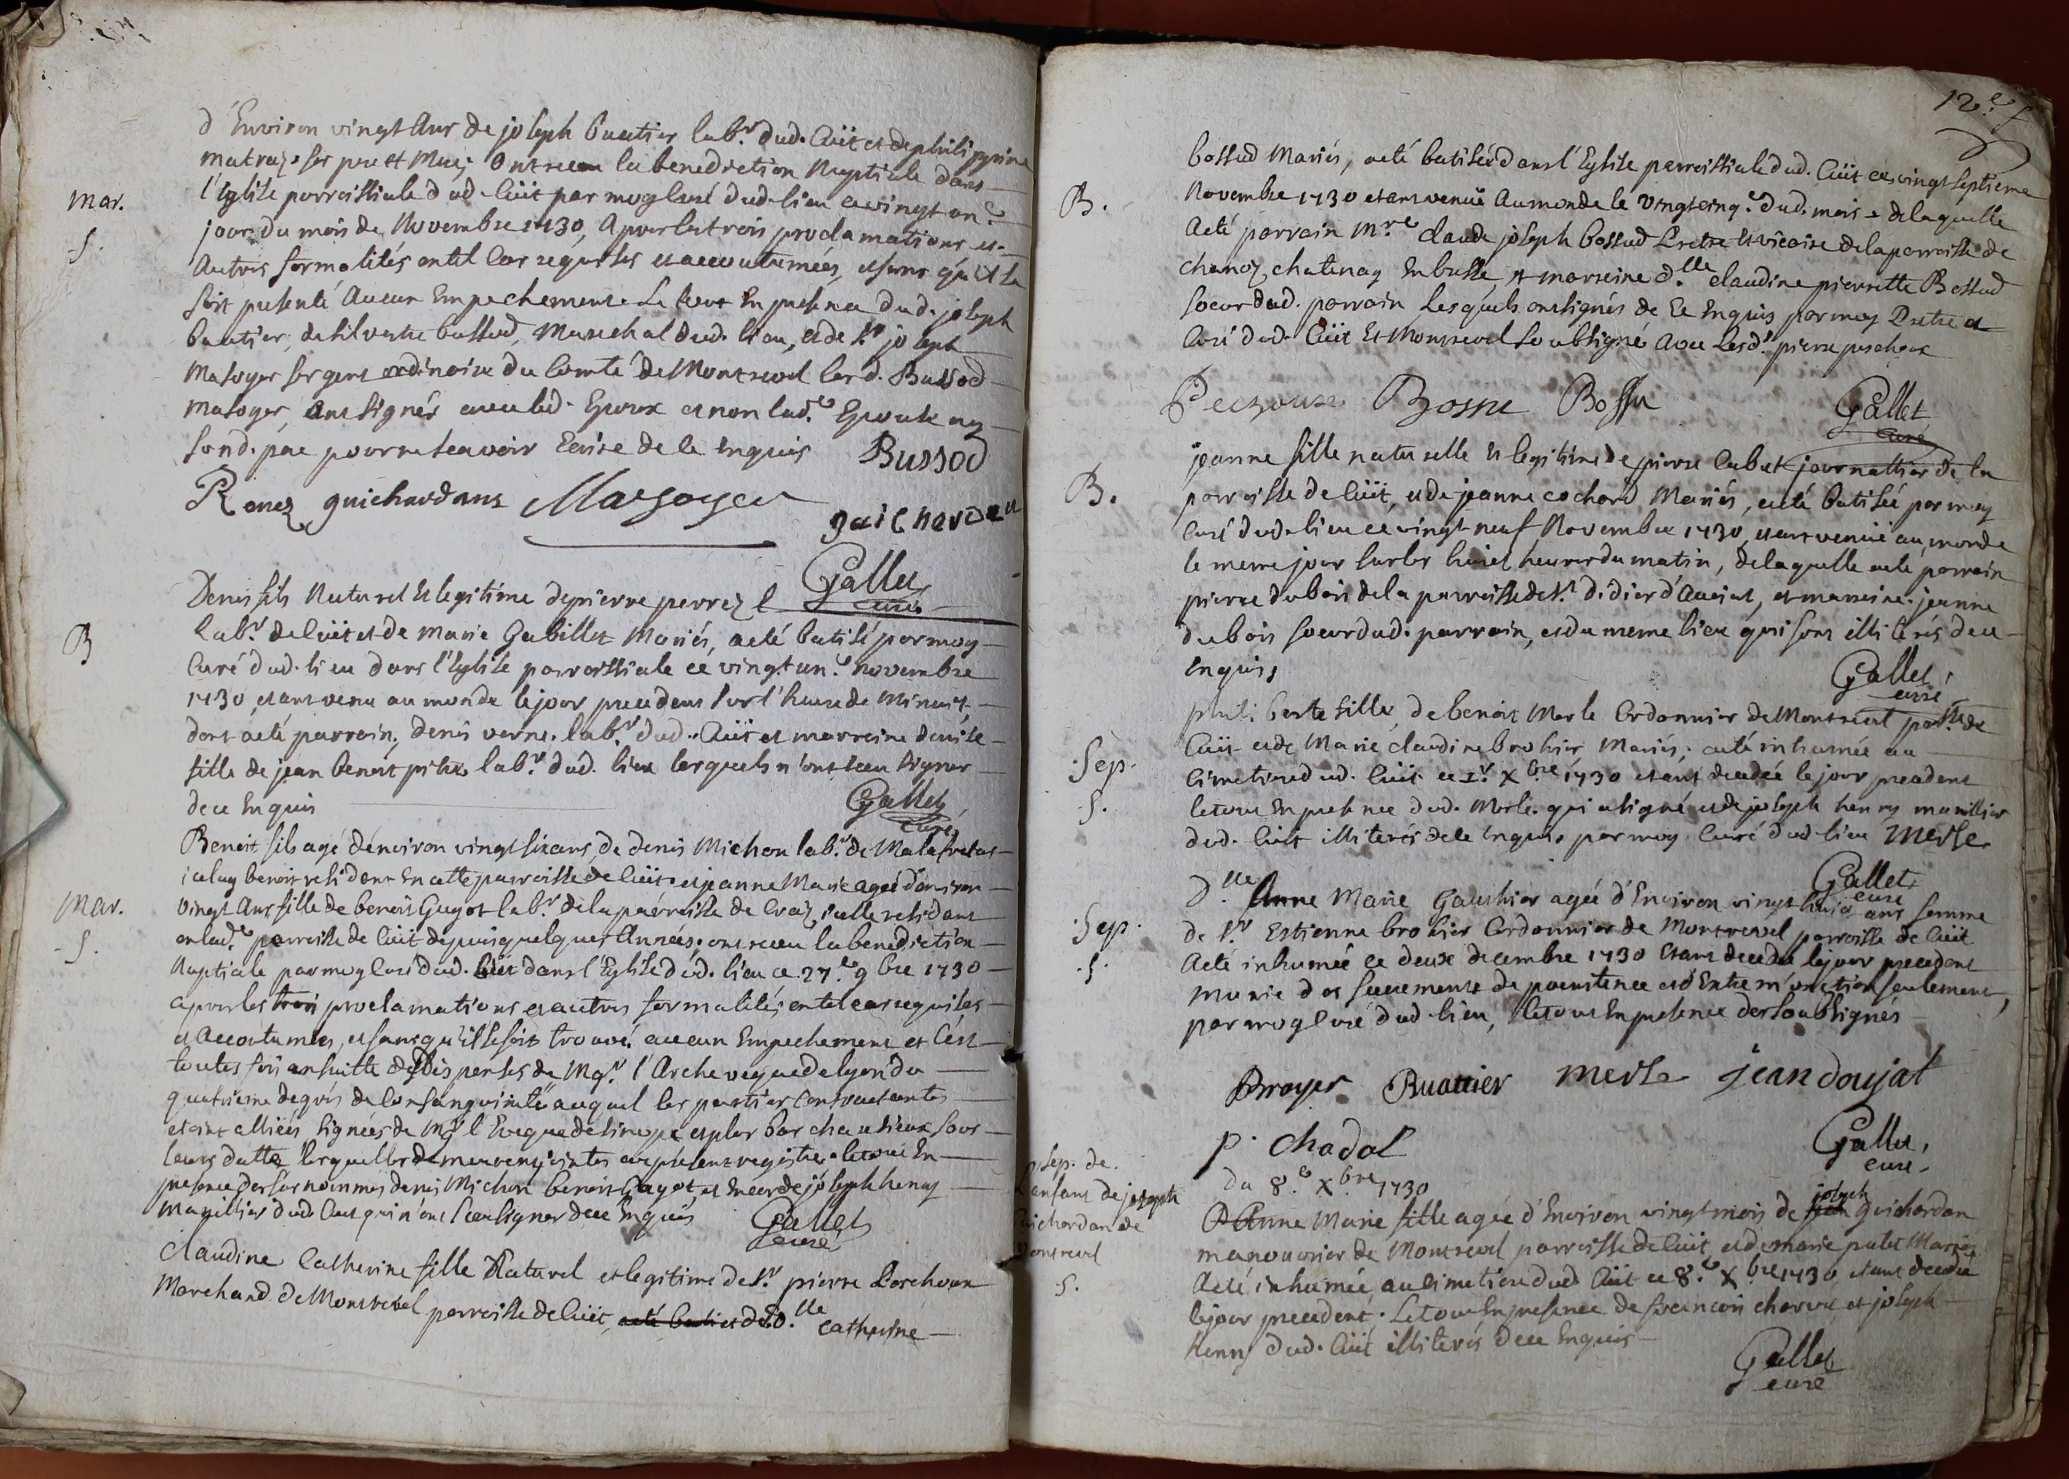 d'Environ vingt Ans de joseph buatier labr. dud. Cüit et de philippine
matray ses pere et Mere; Ont receu la benediction Nuptiale dans
l'Eglise parroissiale dud Cüit par moy Curé dud. lieu ce vingt une
Mar.
jour du mois de Novembre 1730, Apres les trois proclamations et
S.
Autres formalités en tel Cas requises et accoutumées, et sans qu'il se
soit presenté Aucun Empechement. Le tout En presence dud. joseph
buatier, de silvestre bussod, Marechal dud. lieu, et de Sr. joseph
Masoyer sergent ordinaire du Comté de Montrevel lesd. Bussod
Masoyer, Ont signés avec led. Epoux et non lad.e Epouse ny
sond. pere pour ne scavoir Ecrire de ce enquis Bussod
Renez guichardans Masoyer
guichardan
Gallet
curé
Denis fils Naturel et legitime de pierre perrez
B
labr. de Cüit et de Marie Gabillet Mariés, a eté batisé par moy
Curé dud. lieu dans l'Eglise parroissiale ce vingt un.e novembre
1730, etant venu au monde le jour precedent sur l'heure de Minuit
dont a eté parrain, denis verne labr. dud. Cüit et marreine denise
fille de jean benoit labr. dud. lieu lesquels n'ont sceu signer
de ce Enquis
Gallet
curé
Benoit fils agé d'environ vingt six ans, de denis Michon labr. de Malafretas
iceluy benoit residant En cette parroisse de Cüit, et jeanne Marie agée d'environ
Mar.
vingt Ans fille de benoit Guyot labr. de la parroisse de Craz, icelle residant
en lad.e parroisse de Cüit depuis quelques Années; ont receu la benediction
S.
Nuptiale par moy Curé dud. Cüit dans l'Eglise dud. lieu ce 27.e 9bre 1730
apres les trois proclamations et autres formalités en tel cas requises
et Accoutumées, et sans qu'il se soit trouvé aucun Empechement et C'est
toutes fois ensuitte des Dispenses de Mgr. l'Archeveque de lyon du
quatrieme degrés de Consanguinité auquel les parties Contractantes
etoint alliées signées de Mgr l'Eveque de sinope et plus bas sous
leurs dattes lesquelles demeurent jointes au present registre. le tout En
presence des sus nommés denis Michon benoit Guyot, et Encor de joseph henry
Marillier dud. Cüit qui n'ont sceu signer de ce Enquis
Gallet
curé
Claudine Catherine fille Naturel et legitime de Sr. pierre Perchoux
Marchand de Montrevel parroisse de Cüit, a eté bati et de D.lle Catherine
12.e f
bossud Mariés, a eté batisée dans l'Eglise parroissiale dud. Cüit ce vingt septieme
B.
Novembre 1730 etant venüe Au monde le vingt cinq.e dud. mois de laquelle
A eté parrain Mr.e Claude joseph bossud Pretre et vicaire de la parroisse de
Chanoz chatenay En bresse, et marreine d.lle Claudine pierrette Bossud
soeur dud. parrain lesquels ont signés de Ce Enquis par moy Pretre et
Curé dud. Cüit Et Montrevel soubsigné Avec led. Sr. pierre perchoux
Perchoux Bossu Bossu
Gallet
curé
jeanne fille naturelle et legitime de pierre Cabut journallier de la
B.
parroisse de Cüit, et de jeanne cochard Mariés, a eté batisée par moy
Curé dud. lieu ce vingt neuf Novembre 1730, etant venüe au monde
le meme jour sur les huict heures du matin, de laquelle a eté parrain
pierre dubois de la parroisse de St. didier d'Aussiat, et marreine jeanne
dubois soeur dud. parrain, et du meme lieu qui sont illiterés de ce
enquis
Gallet
curé
phili berte fille de benoit Merle Cordonnier de Montrevel parsse. de
Cüit et de Marie claudine brohier Mariés, a eté inhumée au
Sep.
Cimetiere dud. Cüit ce 1r. Xbre 1730 etant decedée le jour precedent
S.
le tout En presence dud. Merle qui a signé et de joseph henry marillier
dud. Cüit illiterés de ce Enquis par moy Curé dud lieu Merle
Gallet
curé
D.lle Anne Marie Gauthier agée d'Environ vingt huict ans femme
Sep.
de Sr. Estienne brohier Cordonnier de Montrevel parroisse de Cüit
S.
A eté inhumée ce deux decembre 1730 Etant decedée le jour precedent
Munie des sacrements de penitence et d'Extreme onction seulement,
par moy Curé dud. lieu, le tout En presence des soubsignés
Broyer Buatier Merle jean doujat
p. chadal
Gallet,
curé
Sep. de
l'enfant de joseph
guichardan de
Montrevel
S.
du 8.e Xbre 1730
Anne Marie fille agée d'Environ vingt mois de jean joseph Guichardan
manouvrier de Montrevel parroisse de Cüit, et de marie Mariés
A eté inhumée au cimetiere dud Cüit ce 8.e Xbre 1730 etant decedée
le jour precedent. Le tout En presence de francois charvet et joseph
henry dud. Cüit illiterés de ce Enquis
Gallet
curé